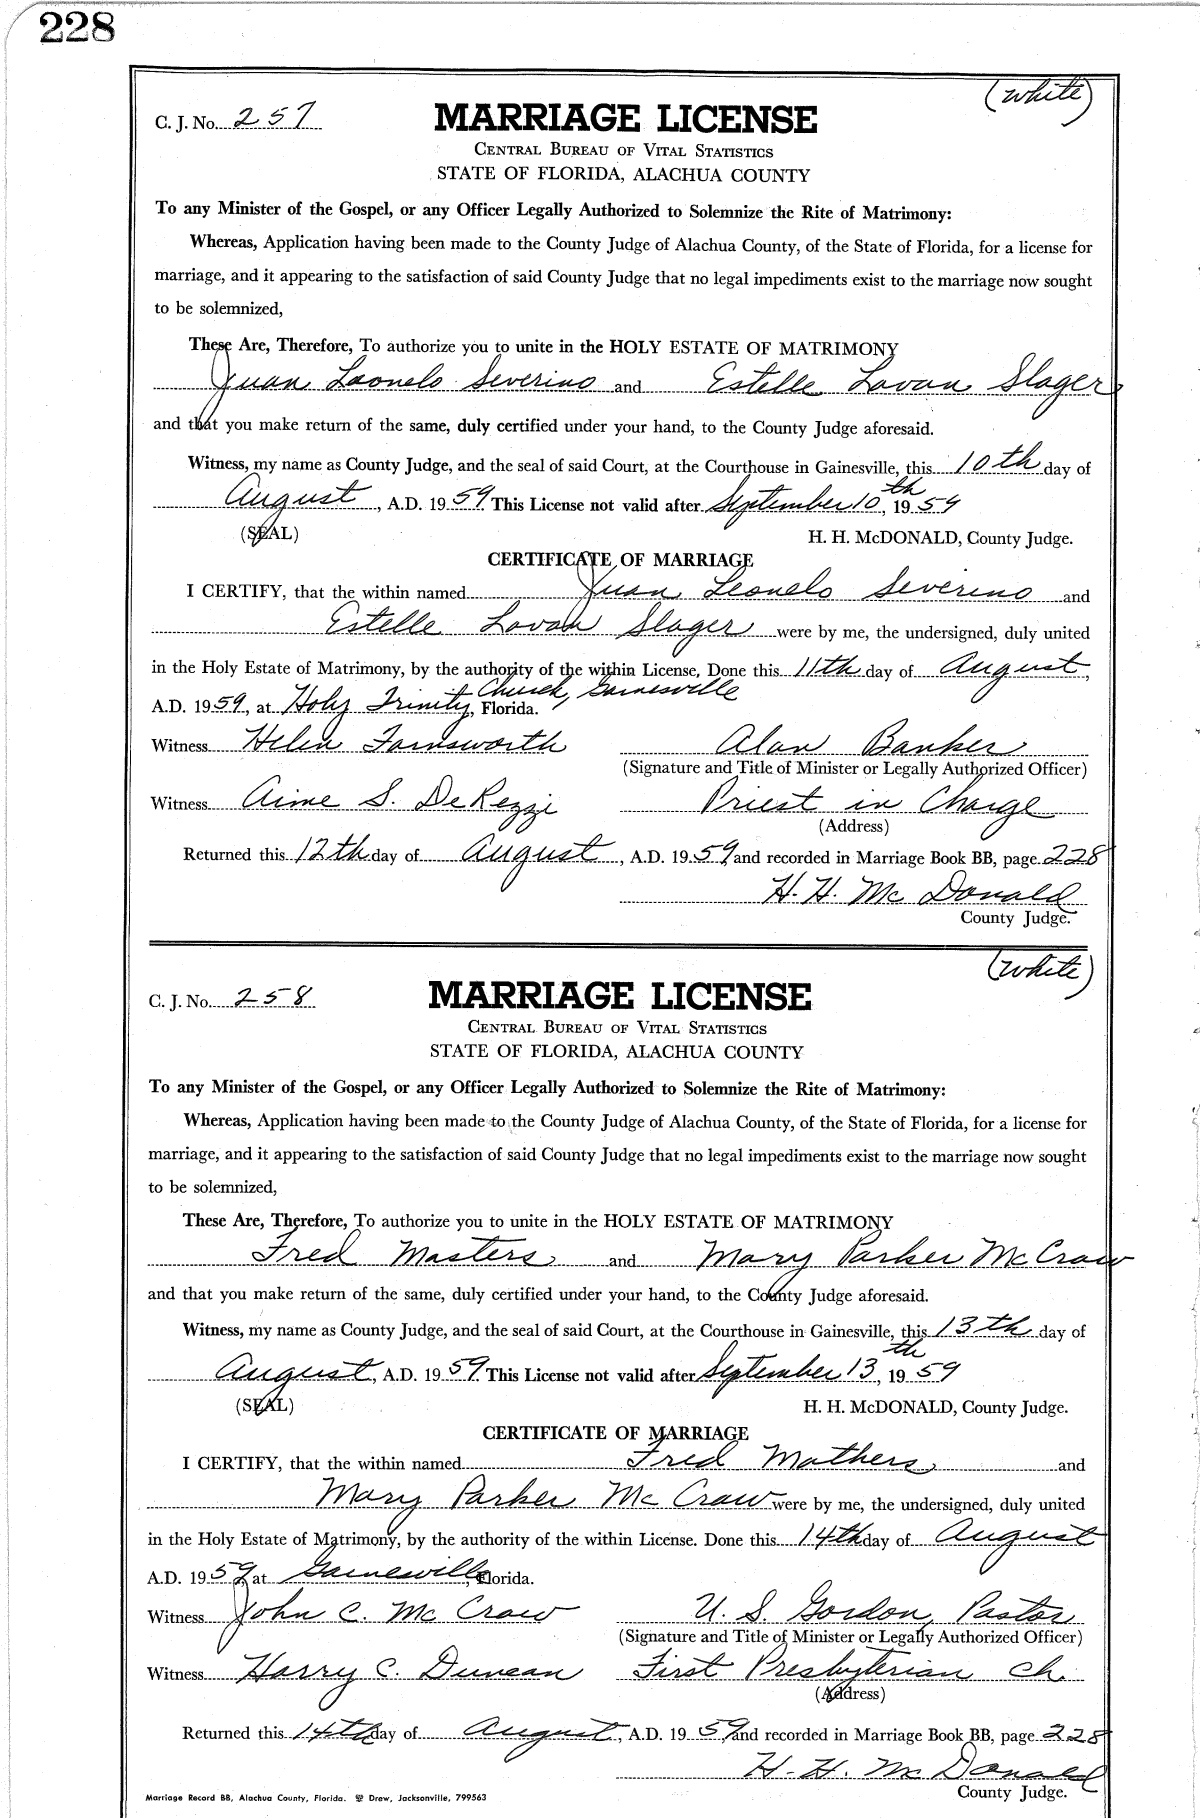 228
(white)
C. J. No. 257 MARRIAGE LICENSE
CENTRAL BUREAU OF VITAL STATISTICS
STATE OF FLORIDA, ALACHUA COUNTY
To any Minister of the Gospel, or any Officer Legally Authorized to Solemnize the Rite of Matrimony:
Whereas, Application having been made to the County Judge of Alachua County, of the State of Florida, for a license for
marriage, and it appearing to the satisfaction of said County Judge that no legal impediments exist to the marriage now sought
to be solemnized,
These Are, Therefore, To authorize you to unite in the HOLY ESTATE OF MATRIMONY
Juan Leonelo Severino and Estelle Lavan Slager
and that you make return of the same, duly certified under your hand, to the County Judge aforesaid.
Witness, my name as County Judge, and the seal of said Court, at the Courthouse in Gainesville, this 10th day of
August, A.D. 1959. This License not valid after September 10th, 1959
(SEAL) H. H. McDONALD, County Judge.
CERTIFICATE OF MARRIAGE
I CERTIFY, that the within named Juan Leonelo Severino and
Estelle Lavan Slager were by me, the undersigned, duly united
in the Holy Estate of Matrimony, by the authority of the within License. Done this 11th day of August,
A.D. 1959, at Holy Trinity Church, Gainesville, Florida.
Witness Helen Farnsworth Alan Banker
(Signature and Title of Minister or Legally Authorized Officer)
Witness Aime S. DeRezzi Priest in Charge
(Address)
Returned this 12th day of August, A.D. 1959, and recorded in Marriage Book BB, page 228
H. H. McDonald
County Judge.
(white)
C. J. No. 258 MARRIAGE LICENSE
CENTRAL BUREAU OF VITAL STATISTICS
STATE OF FLORIDA, ALACHUA COUNTY
To any Minister of the Gospel, or any Officer Legally Authorized to Solemnize the Rite of Matrimony:
Whereas, Application having been made to the County Judge of Alachua County, of the State of Florida, for a license for
marriage, and it appearing to the satisfaction of said County Judge that no legal impediments exist to the marriage now sought
to be solemnized,
These Are, Therefore, To authorize you to unite in the HOLY ESTATE OF MATRIMONY
Fred Masters and Mary Parker McCraw
and that you make return of the same, duly certified under your hand, to the County Judge aforesaid.
Witness, my name as County Judge, and the seal of said Court, at the Courthouse in Gainesville, this 13th day of
August, A.D. 1959. This License not valid after September 13th, 1959
(SEAL) H. H. McDONALD, County Judge.
CERTIFICATE OF MARRIAGE
I CERTIFY, that the within named Fred Mathers and
Mary Parker McCraw were by me, the undersigned, duly united
in the Holy Estate of Matrimony, by the authority of the within License. Done this 14th day of August
A.D. 1959, at Gainesville, Florida.
Witness John C. McCraw U. S. Gordon, Pastor
(Signature and Title of Minister or Legally Authorized Officer)
Witness Harry C. Duncan First Presbyterian Ch.
(Address)
Returned this 14th day of August, A.D. 1959, and recorded in Marriage Book BB, page 228
H. H. McDonald
County Judge.
Marriage Record BB, Alachua County, Florida. Drew, Jacksonville, 799563